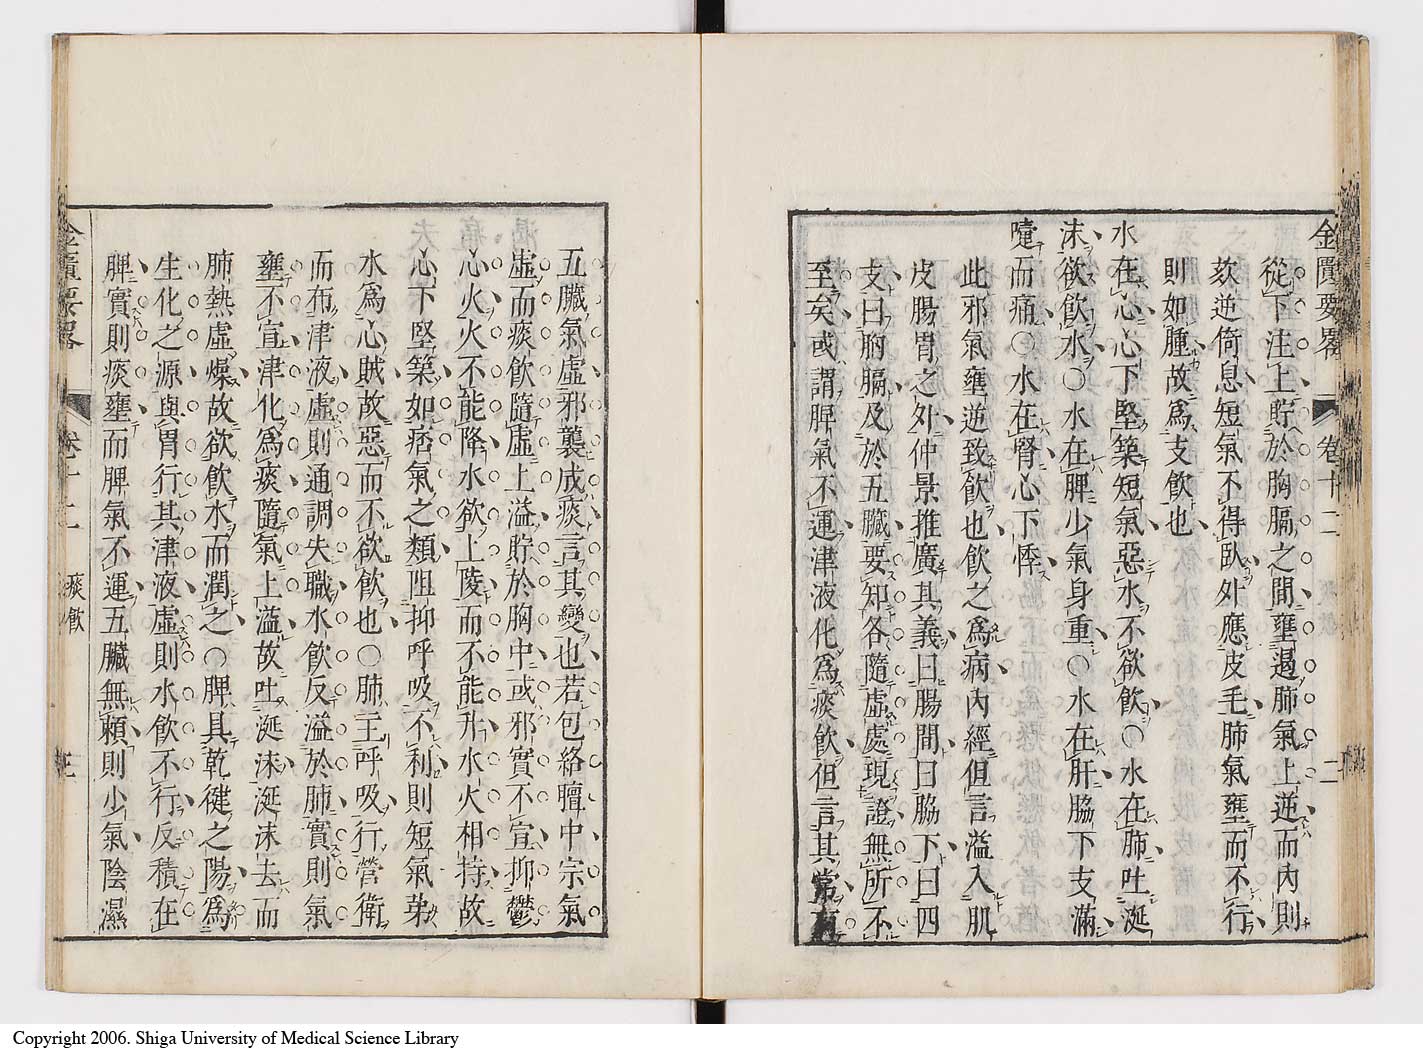 金匱要畧 卷十二 二
從下注上貯於胸膈之間壅遏肺氣上逆而內則
欬逆倚息短氣不得臥外應皮毛肺氣壅而不行
則如腫故爲支飮也
水在心心下堅築短氣惡水不欲飮○水在肺吐涎
沫欲飮水○水在脾少氣身重○水在肝脇下支滿
嚏而痛○水在腎心下悸
此邪氣壅逆致飮也飮之爲病內經但言溢入肌
皮腸胃之外仲景推廣其義曰腸間曰脇下曰四
支曰胸膈及於五臟要知各隨虛處現證無所不
至矣或謂脾氣不運津液化爲痰飮但言其常
五臟氣虛邪襲成痰言其變也若包絡膻中宗氣
虛而痰飮隨虛上溢貯於胸中或邪實不宣抑鬱
心火火不能降水欲上陵而不能升水火相持故
心下堅築如痞氣之類阻抑呼吸不利則短氣苐
水爲心賊故惡而不欲飮也○肺主呼吸行營衛
而布津液虛則通調失職水飮反溢於肺實則氣
壅不宣津化爲痰隨氣上溢故吐涎沫涎沫去而
肺熱虛燥故欲飮水而潤之○脾具乾健之陽爲
生化之源與胃行其津液虛則水飮不行反積在
脾實則痰壅而脾氣不運五臟無賴則少氣陰濕
金匱要畧 卷十二 痰飮 三
Copyright 2006. Shiga University of Medical Science Library